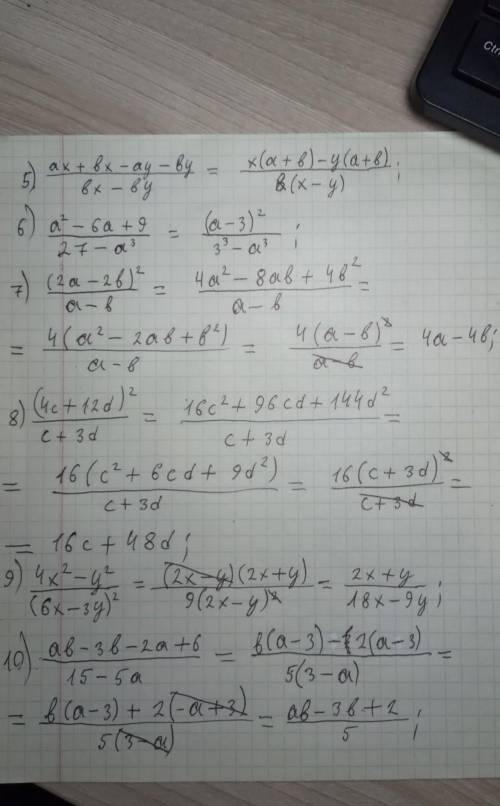 Ctrl
5) (ax + bx - ay - by)/(bx - by) = (x(a+b) - y(a+b))/(b(x-y));
6) (a² - 6a + 9)/(27 - a³) = (a-3)²/(3³ - a³);
7) (2a - 2b)²/(a - b) = (4a² - 8ab + 4b²)/(a - b) =
= 4(a² - 2ab + b²)/(a - b) = 4(a-b)²/(a-b) = 4a - 4b;
8) (4c + 12d)²/(c + 3d) = (16c² + 96cd + 144d²)/(c + 3d) =
= 16(c² + 6cd + 9d²)/(c + 3d) = 16(c + 3d)²/(c + 3d) =
= 16c + 48d;
9) (4x² - y²)/(6x - 3y)² = (2x-y)(2x+y)/9(2x-y)² = (2x+y)/(18x - 9y);
10) (ab - 3b - 2a + 6)/(15 - 5a) = (b(a-3) - 2(a-3))/5(3-a) =
= (b(a-3) + 2(-a+3))/5(3-a) = (ab - 3b + 2)/5;